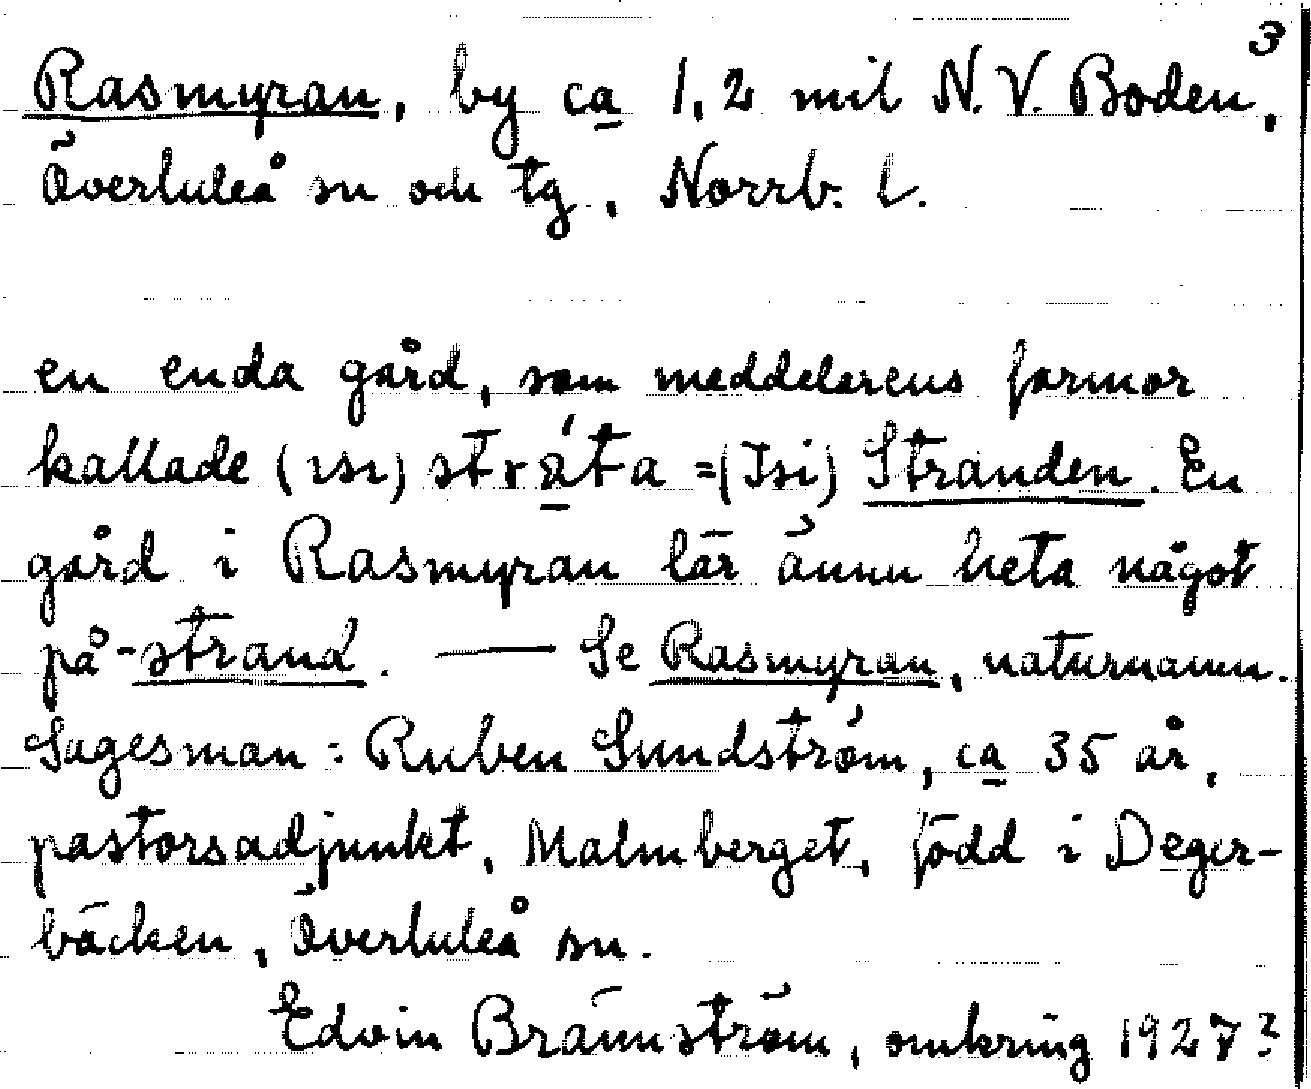 3
Rasmyran, by ca 1,2 mil N.V. Boden,
Överluleå sn och tg, Norrb. l.
en enda gård, som meddelarens farmor
kallade (ısı) strá̲ta =(Isi) Stranden. En
gård i Rasmyran lär ännu heta något
på -strand. — Se Rasmyran, naturnamn.
Sagesman: Ruben Sundström, ca 35 år,
pastorsadjunkt, Malmberget, född i Deger-
bäcken, Överluleå sn.
Edvin Brännström, omkring 1927?